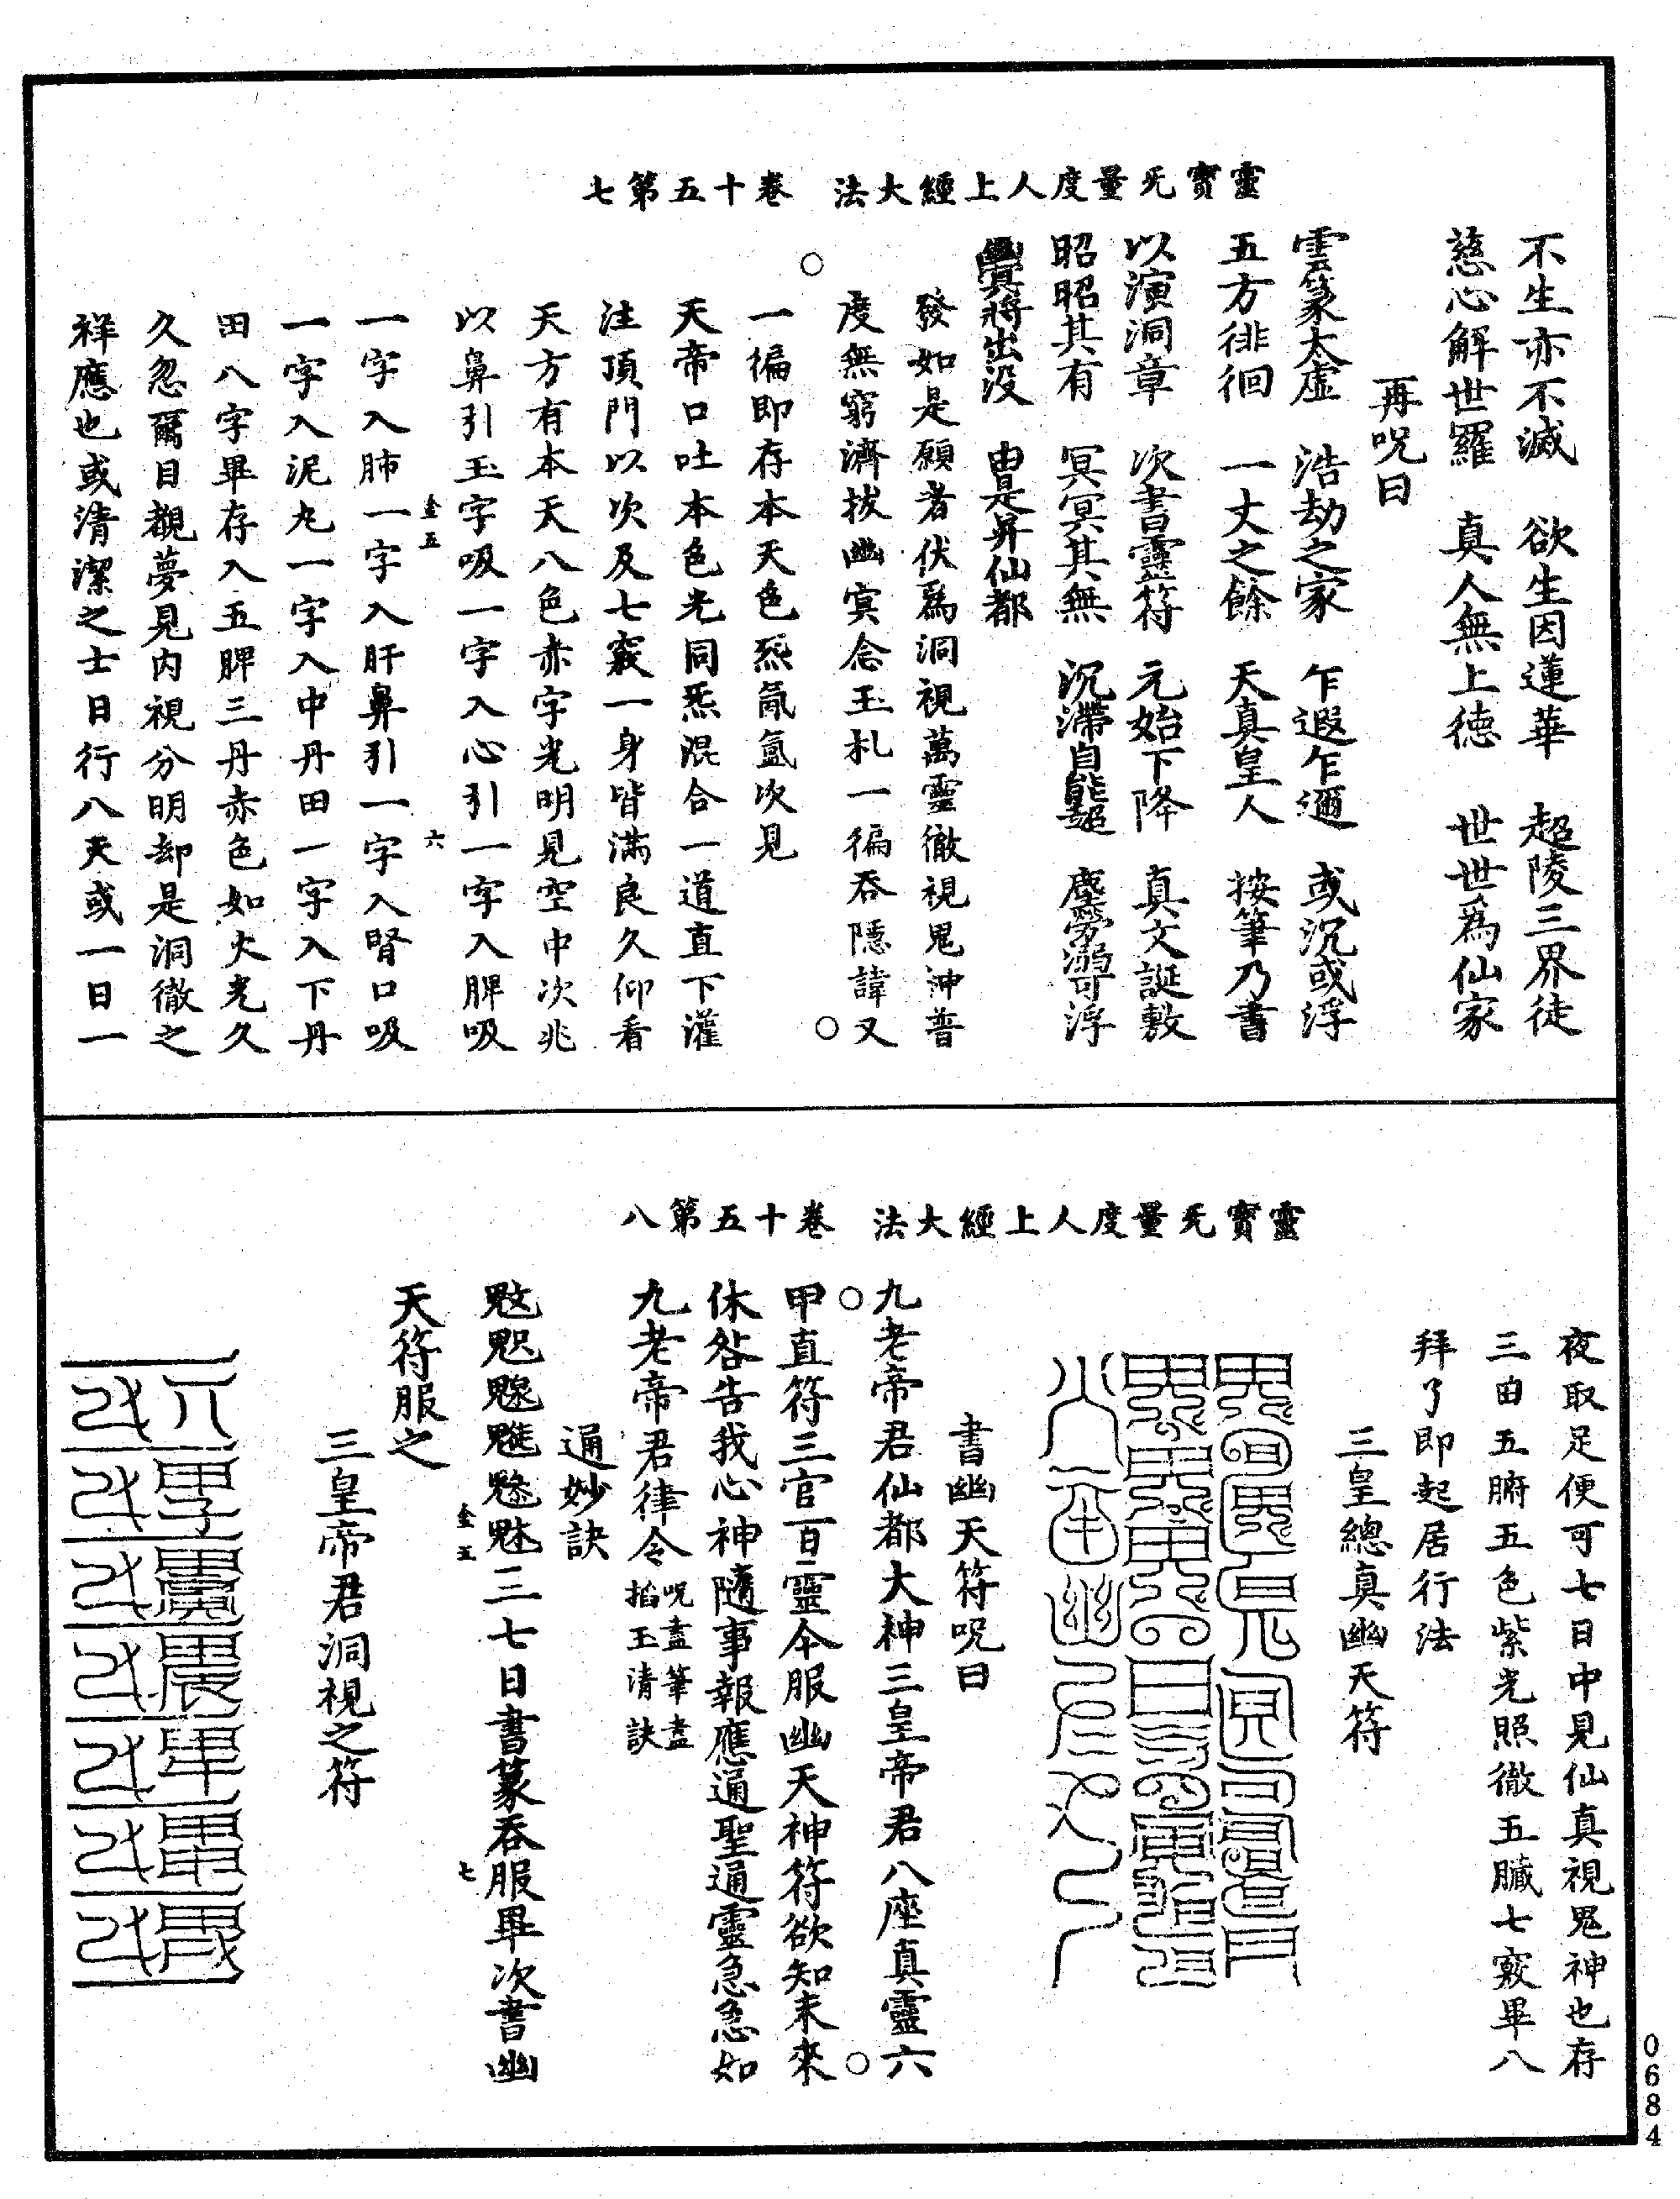 靈寶旡量度人上經大法　卷十五第七
不生亦不滅　欲生因蓮華　超陵三界徒
慈心解世羅　真人無上德　世世爲仙家
再呪曰
雲篆太虛　浩劫之家　乍遐乍邇　或沉或浮
五方徘徊　一丈之餘　天真皇人　按筆乃書
以演洞章　次書靈符　元始下降　真文誕敷
昭昭其有　冥冥其無　沉滯自能超　塵勞溺可浮
幽冥將出没　由是昇仙都
發如是願者伏爲洞視萬靈徹視鬼神普
度無窮濟拔幽冥念玉札一徧吞隱諱又
一徧即存本天色炁氤氳次見
天帝口吐本色光同炁混合一道直下灌
注頂門以次及七竅一身皆滿良久仰看
天方有本天八色赤字光明見空中次兆
以鼻引玉字吸一字入心引一字入脾吸
金五　六
一字入肺一字入肝鼻引一字入腎口吸
一字入泥丸一字入中丹田一字入下丹
田八字畢存入五脾三丹赤色如火光久
久忽爾目覩夢見内視分明却是洞徹之
祥應也或清潔之士日行八天或一日一
靈寶旡量度人上經大法　卷十五第八
夜取足便可七日中見仙真視鬼神也存
三由五腑五色紫光照徹五臟七竅畢八
拜了即起居行法
三皇總真幽天符
書幽天符呪曰
九老帝君仙都大神三皇帝君八座真靈六
甲直符三官百靈今服幽天神符欲知未來
休咎告我心神隨事報應通聖通靈急急如
九老帝君律令呪盡筆盡掐玉清訣
通妙訣
三七日書篆吞服畢次書幽
金五　七
天符服之
三皇帝君洞視之符
0684